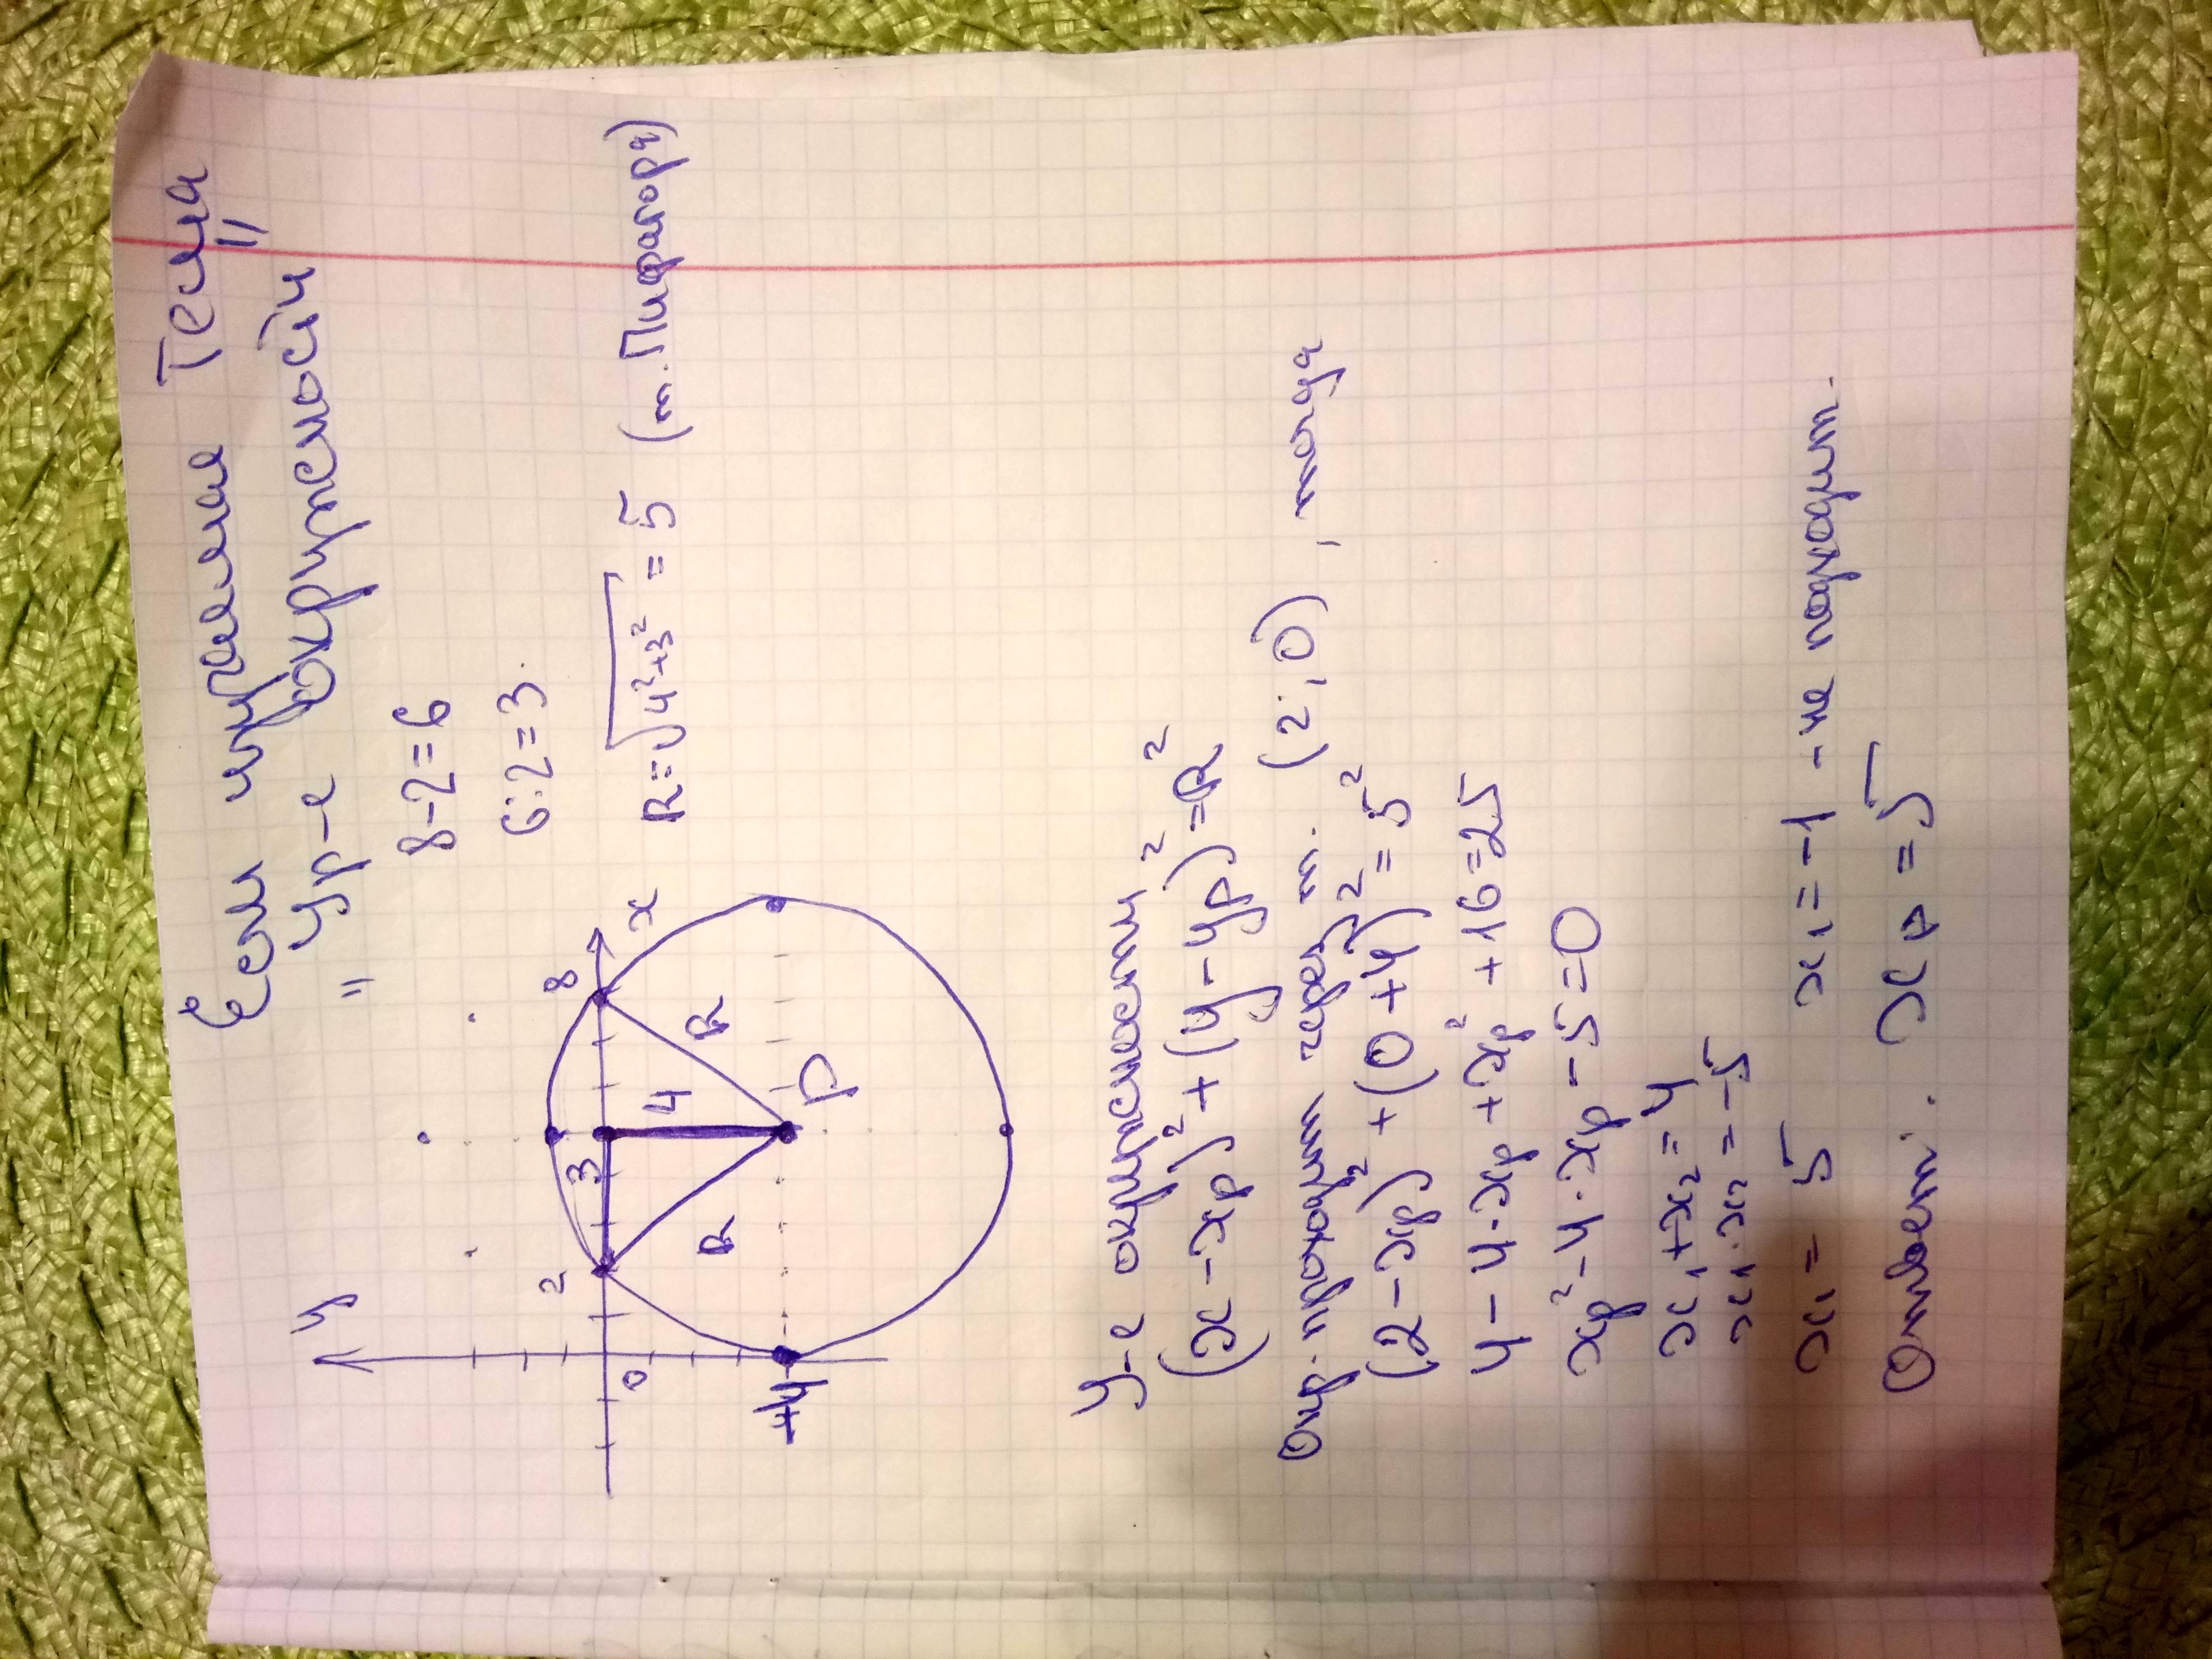 Если изучение Тема
"Ур-е Окружности"
8-2=6
6:2=3.
R=√4²+3² = 5 (т. Пифагора)
y
2
8
x
3
4
0
R
R
-4
P
У-е окружности
(x-xp)²+(y-yp)²=R²
Окр. проходит через т. (2;0), тогда
(2-xp)²+(0+4)²=5²
4-4·xp+xp²+16=25
xp²-4·xp-5=0
x1+x2=4
x1·x2=-5
x1=5 x1=-1 -не подходит.
Ответ: xp=5